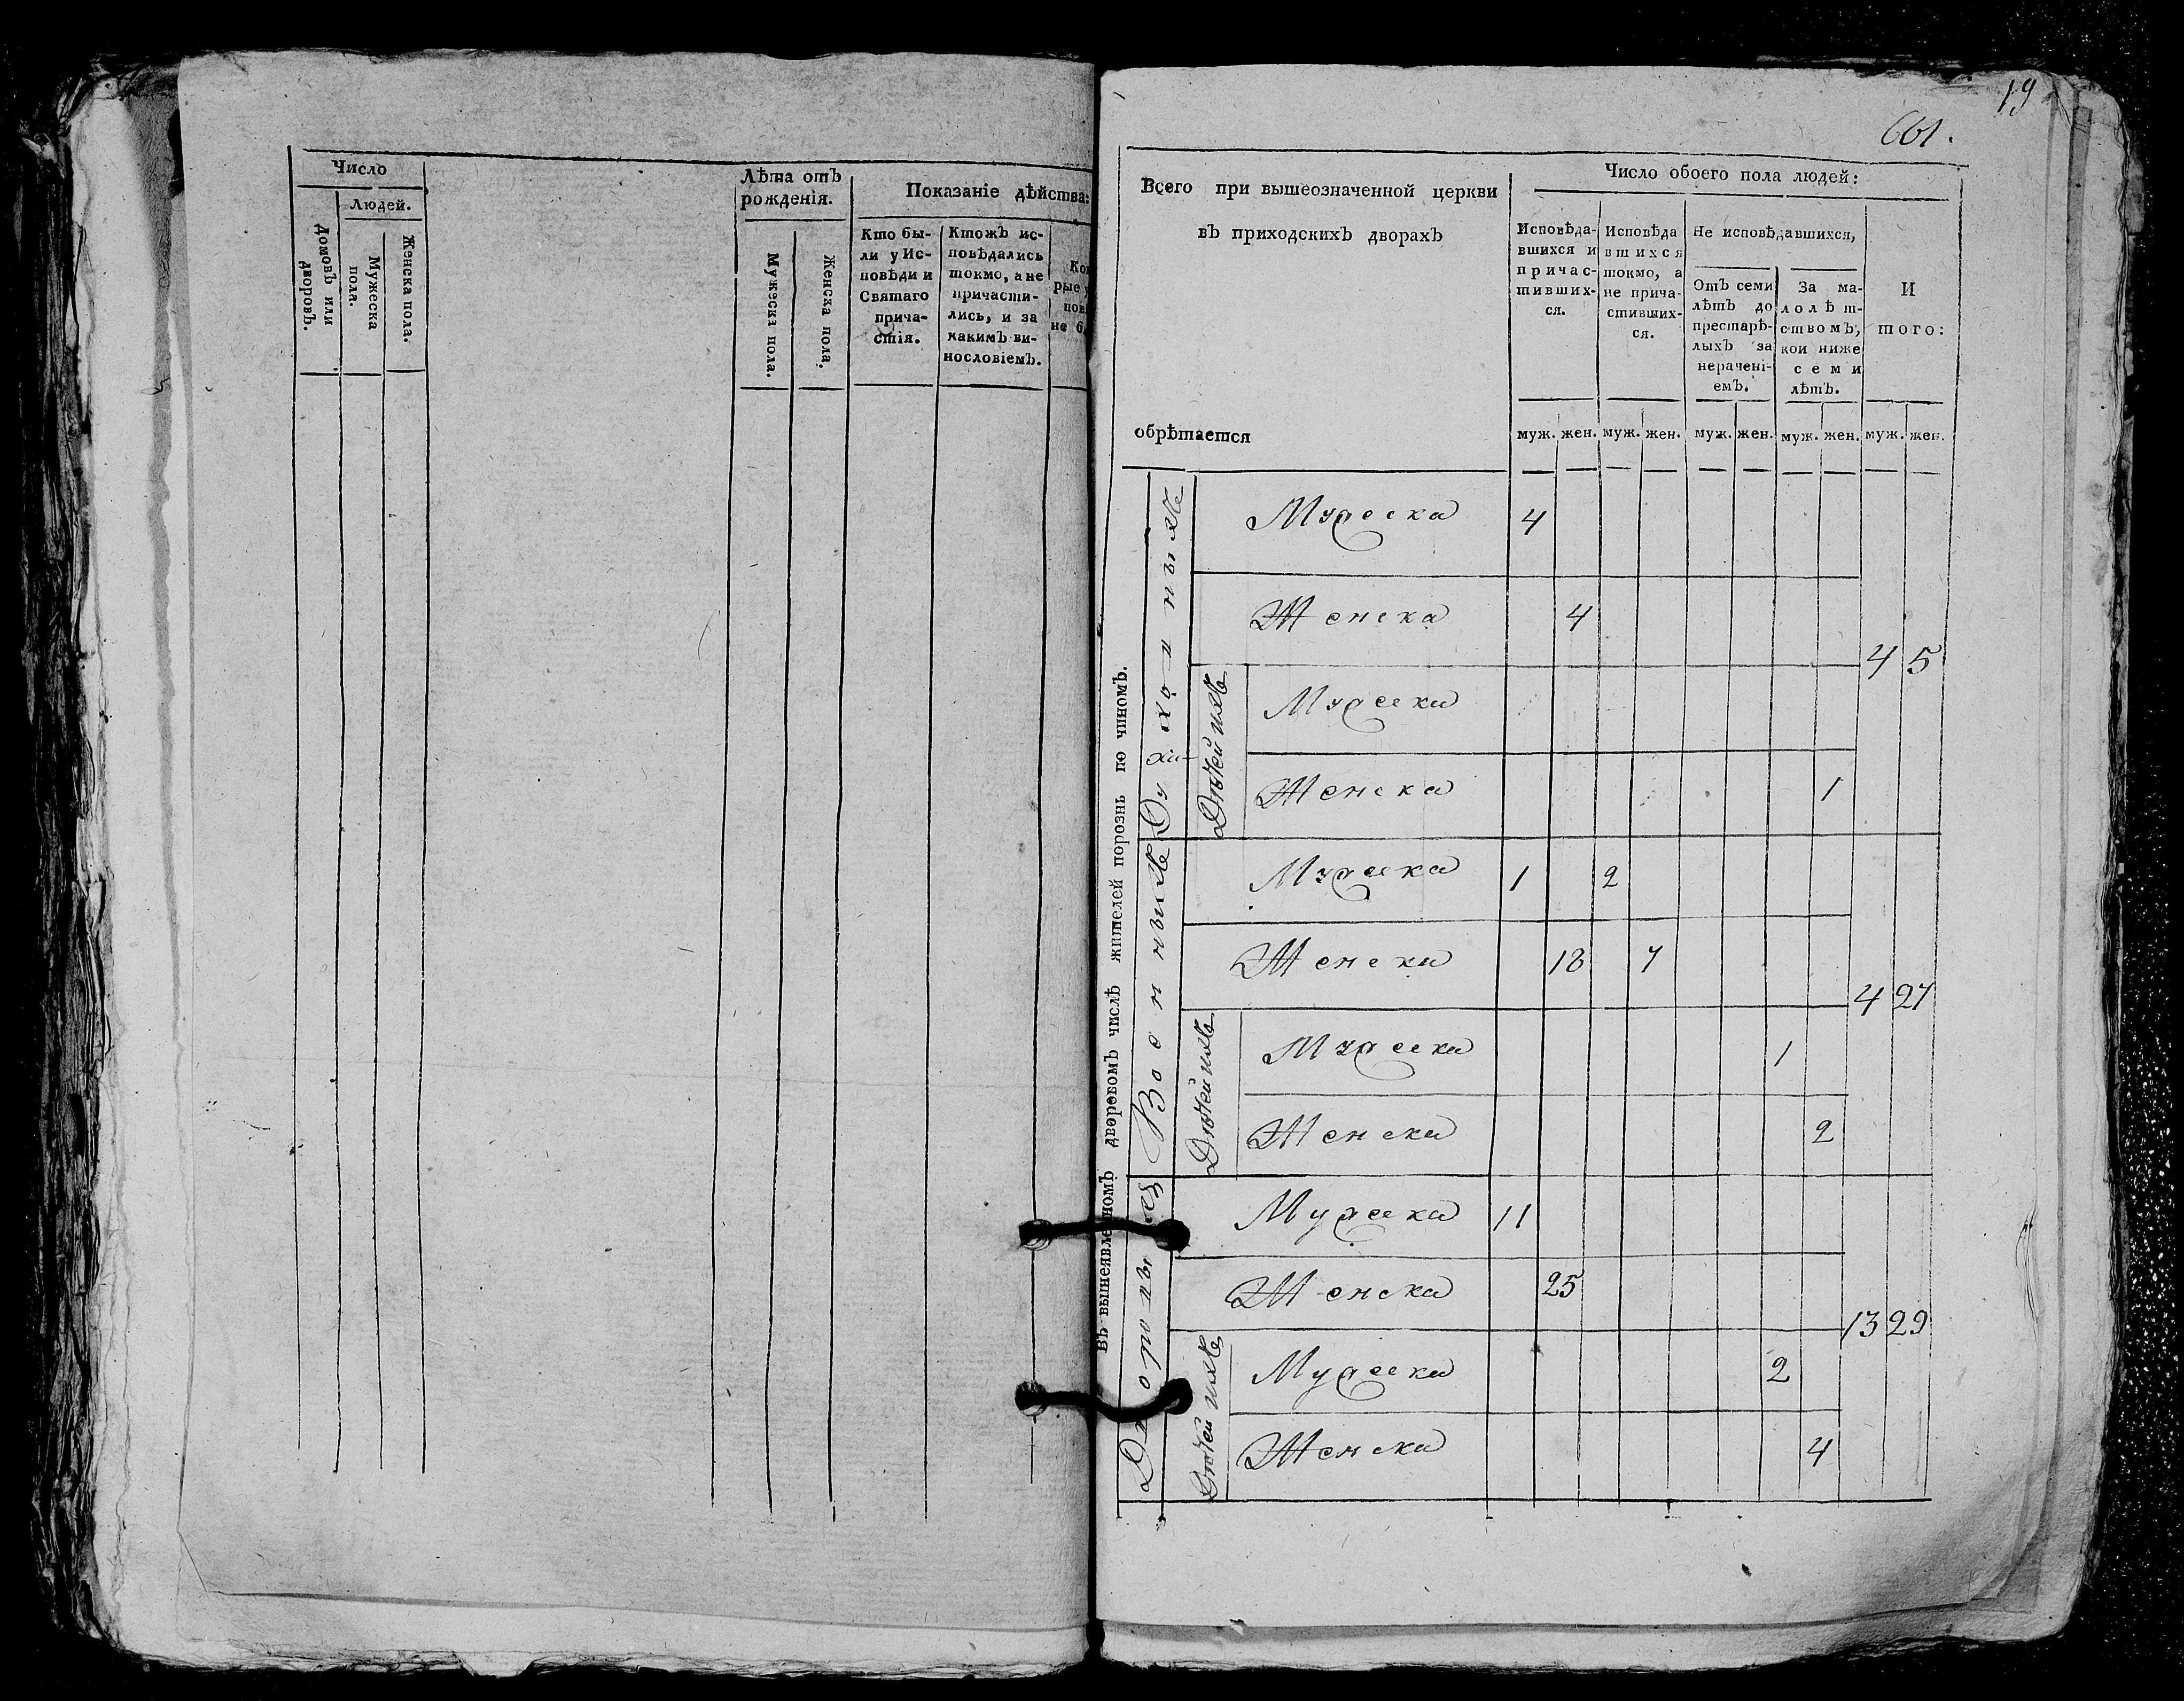 Число
Людей.
Домовъ или дворовъ.
Мужеска пола.
Женска пола.
Лѣта отъ
рожденія.
Мужеска пола.
Женска пола.
Показаніе дѣйства:
Кто бы-
ли у Ис-
повѣди и
Святаго
прича-
стія.
Ктожъ ис-
повѣдались
токмо, а не
причасти-
лись, и за
какимъ ви-
нословіемъ.
19
661.
Всего при вышеозначенной церкви
въ приходскихъ дворахъ
обрѣтается
Число обоего пола людей:
Исповѣда-
вшихся и
причас-
тивших-
ся.
Исповѣда
вшихся
токмо, а
не прича-
стивших-
ся.
Не исповѣдавшихся,
Отъ семи
лѣтъ до
престарѣ-
лыхъ за
нерачені-
емъ.
За ма-
лолѣт-
ствомъ,
кои ниже
семи
лѣтъ.
И
того:
муж. жен. муж. жен. муж. жен. муж. жен. муж. жен.
Въ вышеявленномъ дворовомъ числѣ жителей порознь по чиномъ.
Духовныхъ
Мужеска 4
Женска 4
4 5
Дѣтей ихъ
Мужеска
Женска 1
Военныхъ
Мужеска 1 2
Женска 18 7
4 27
Дѣтей ихъ
Мужеска 1
Женска 2
Дворовыхъ
Мужеска 11
Женска 25
13 29
Дѣтей ихъ
Мужеска 2
Женска 4